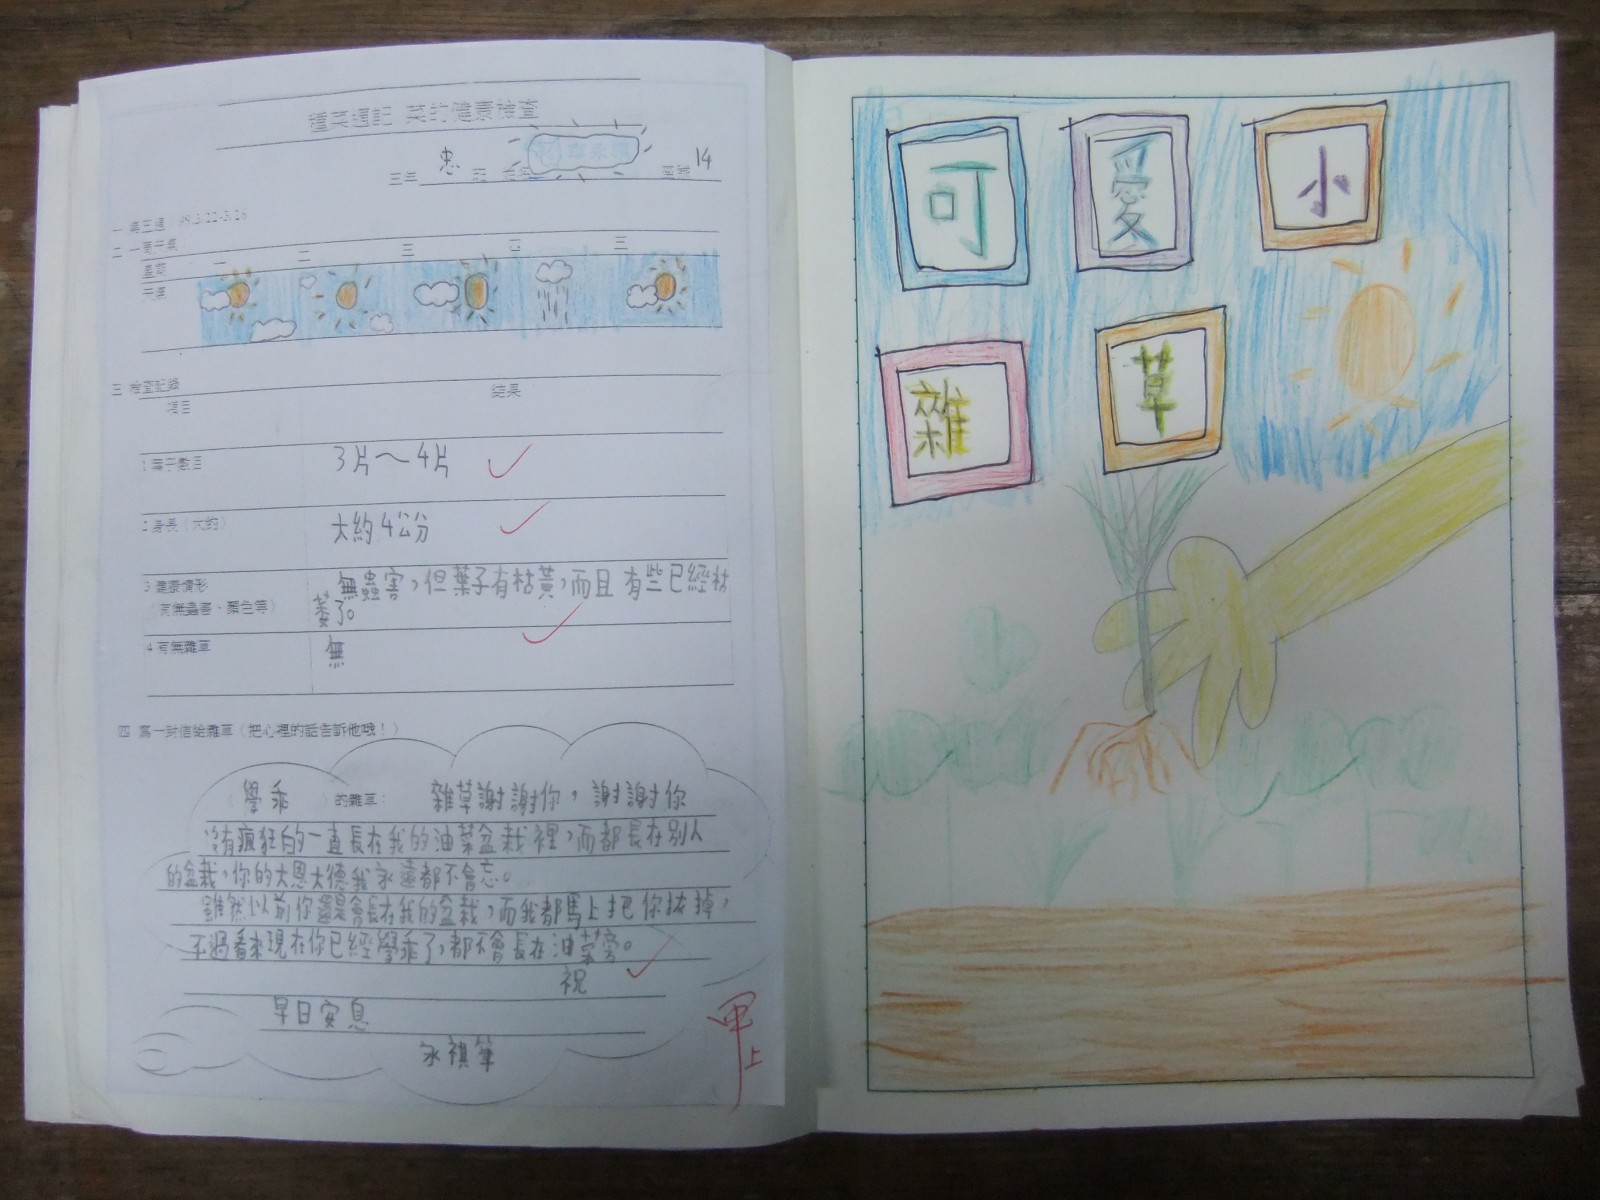 種菜週記 菜的健康檢查
三年 忠 班 14
一 第五週 98.3.22-3.26
二 一週天氣
星期 一 二 三 四 五
天氣
三 檢查記錄
項目 結果
1 葉子數目 3片～4片
2 身長(大約) 大約4公分
3 健康情形 無蟲害,但葉子有枯黃,而且有些已經枯
(有無蟲害、顏色等) 萎了。
4 有無雜草 無
四 寫一封信給雜草(把心裡的話告訴他哦!)
(學乖)的雜草: 雜草謝謝你,謝謝你
沒有瘋狂的一直長在我的油菜盆栽裡,而都長在別人
的盆栽,你的大恩大德我永遠都不會忘。
雖然以前你還是會長在我的盆栽,而我都馬上把你拔掉,
不過看來現在你已經學乖了,都不會長在油菜旁。
祝
早日安息
永祺筆
甲上
可愛小
雜草